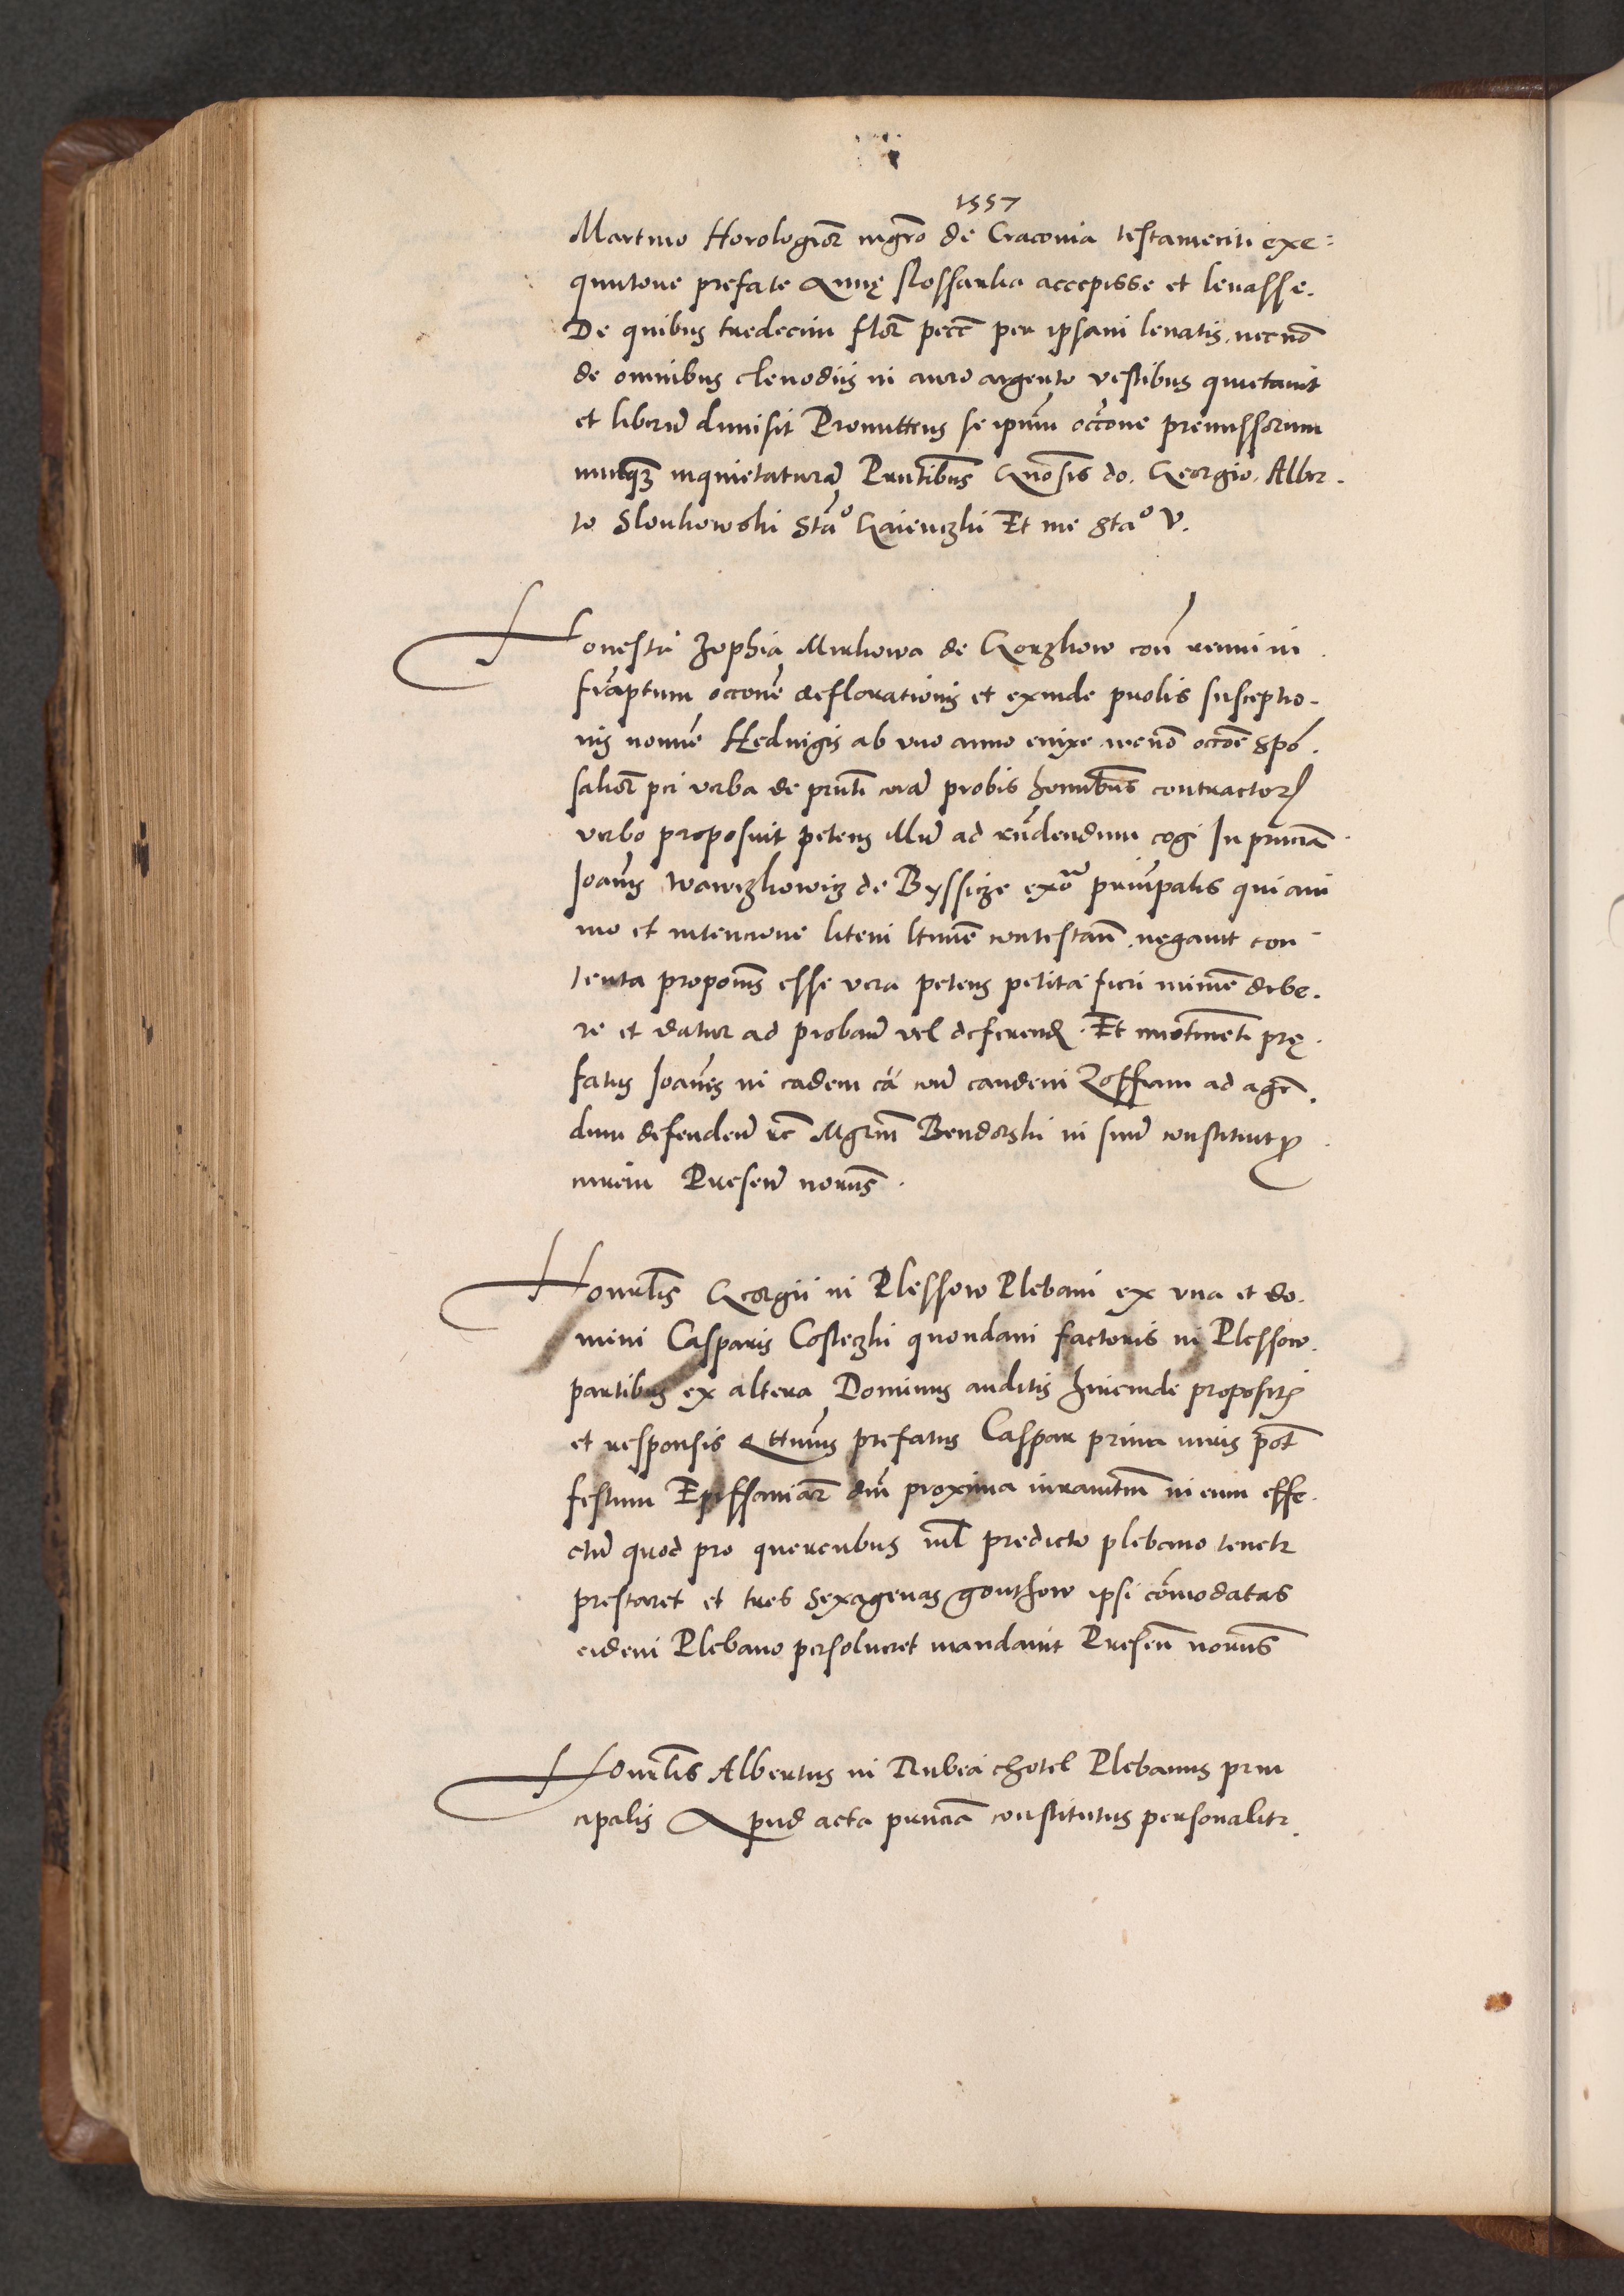 1557
Martino Horologior mgro de Cracovia testamenti exe=
quutore prefate Annę Slossarka accepisse et levasse.
De quibus tredecim flor pecc per ipsam levatis, necno
de omnibus clenodiis in auro argento vestibus quietavit
et liberu dimisit Promittens se ipsum occone premissorum
nunqz inquietatura Pntibus Gnosis do. Georgio. Alber-
to Slonkowski Stao Gaienczki Et me Stao V.
Honesta Zophia Mirkowa de Gorzkow con reum in
fraptum occone deflorationis et exinde prolis susceptio-
nis nomine Hedvigis ab vno anno enixe necno occoe Spo-
salior per verba de pnti cora probis hominibus contractor
verbo proposuit petens illum ad rndendum cogi In pncia
Joanis Wawrzkowicz de Byssicze exo principalis qui ani
mo et intencione litem ltime contestan negavit con
tenta proponis esse vera petens petita fieri minime debe-
re et datur ad proban vel deferend. Et prę-
fatus Joanes in eadem ca con eandem Zoffiam ad agen
dum defenden etc Mgrm Bendorski in suum constituit pro
curem Presen noriis.
Honorlis Georgii in Plessow Plebani ex vna et do-
mini Casparis Costeczki quondam factoris in Plessow
partibus ex altera Dominus auditis hincinde propositis
et responsis Attinus prefatus Caspar prima iuris post
festum Epiffaniar dni proxima iuramtum in eum effe-
ctu quod pro quercubus nil predicto plebano tenetr
prestaret et tres sexagenas gonthow ipsi comodatas
eidem Plebano persolveret mandavit Presen noriis
Honorlis Albertus in Rubea chotel Plebanus prin
cipalis Apud acta pncia constitutus personalitr.